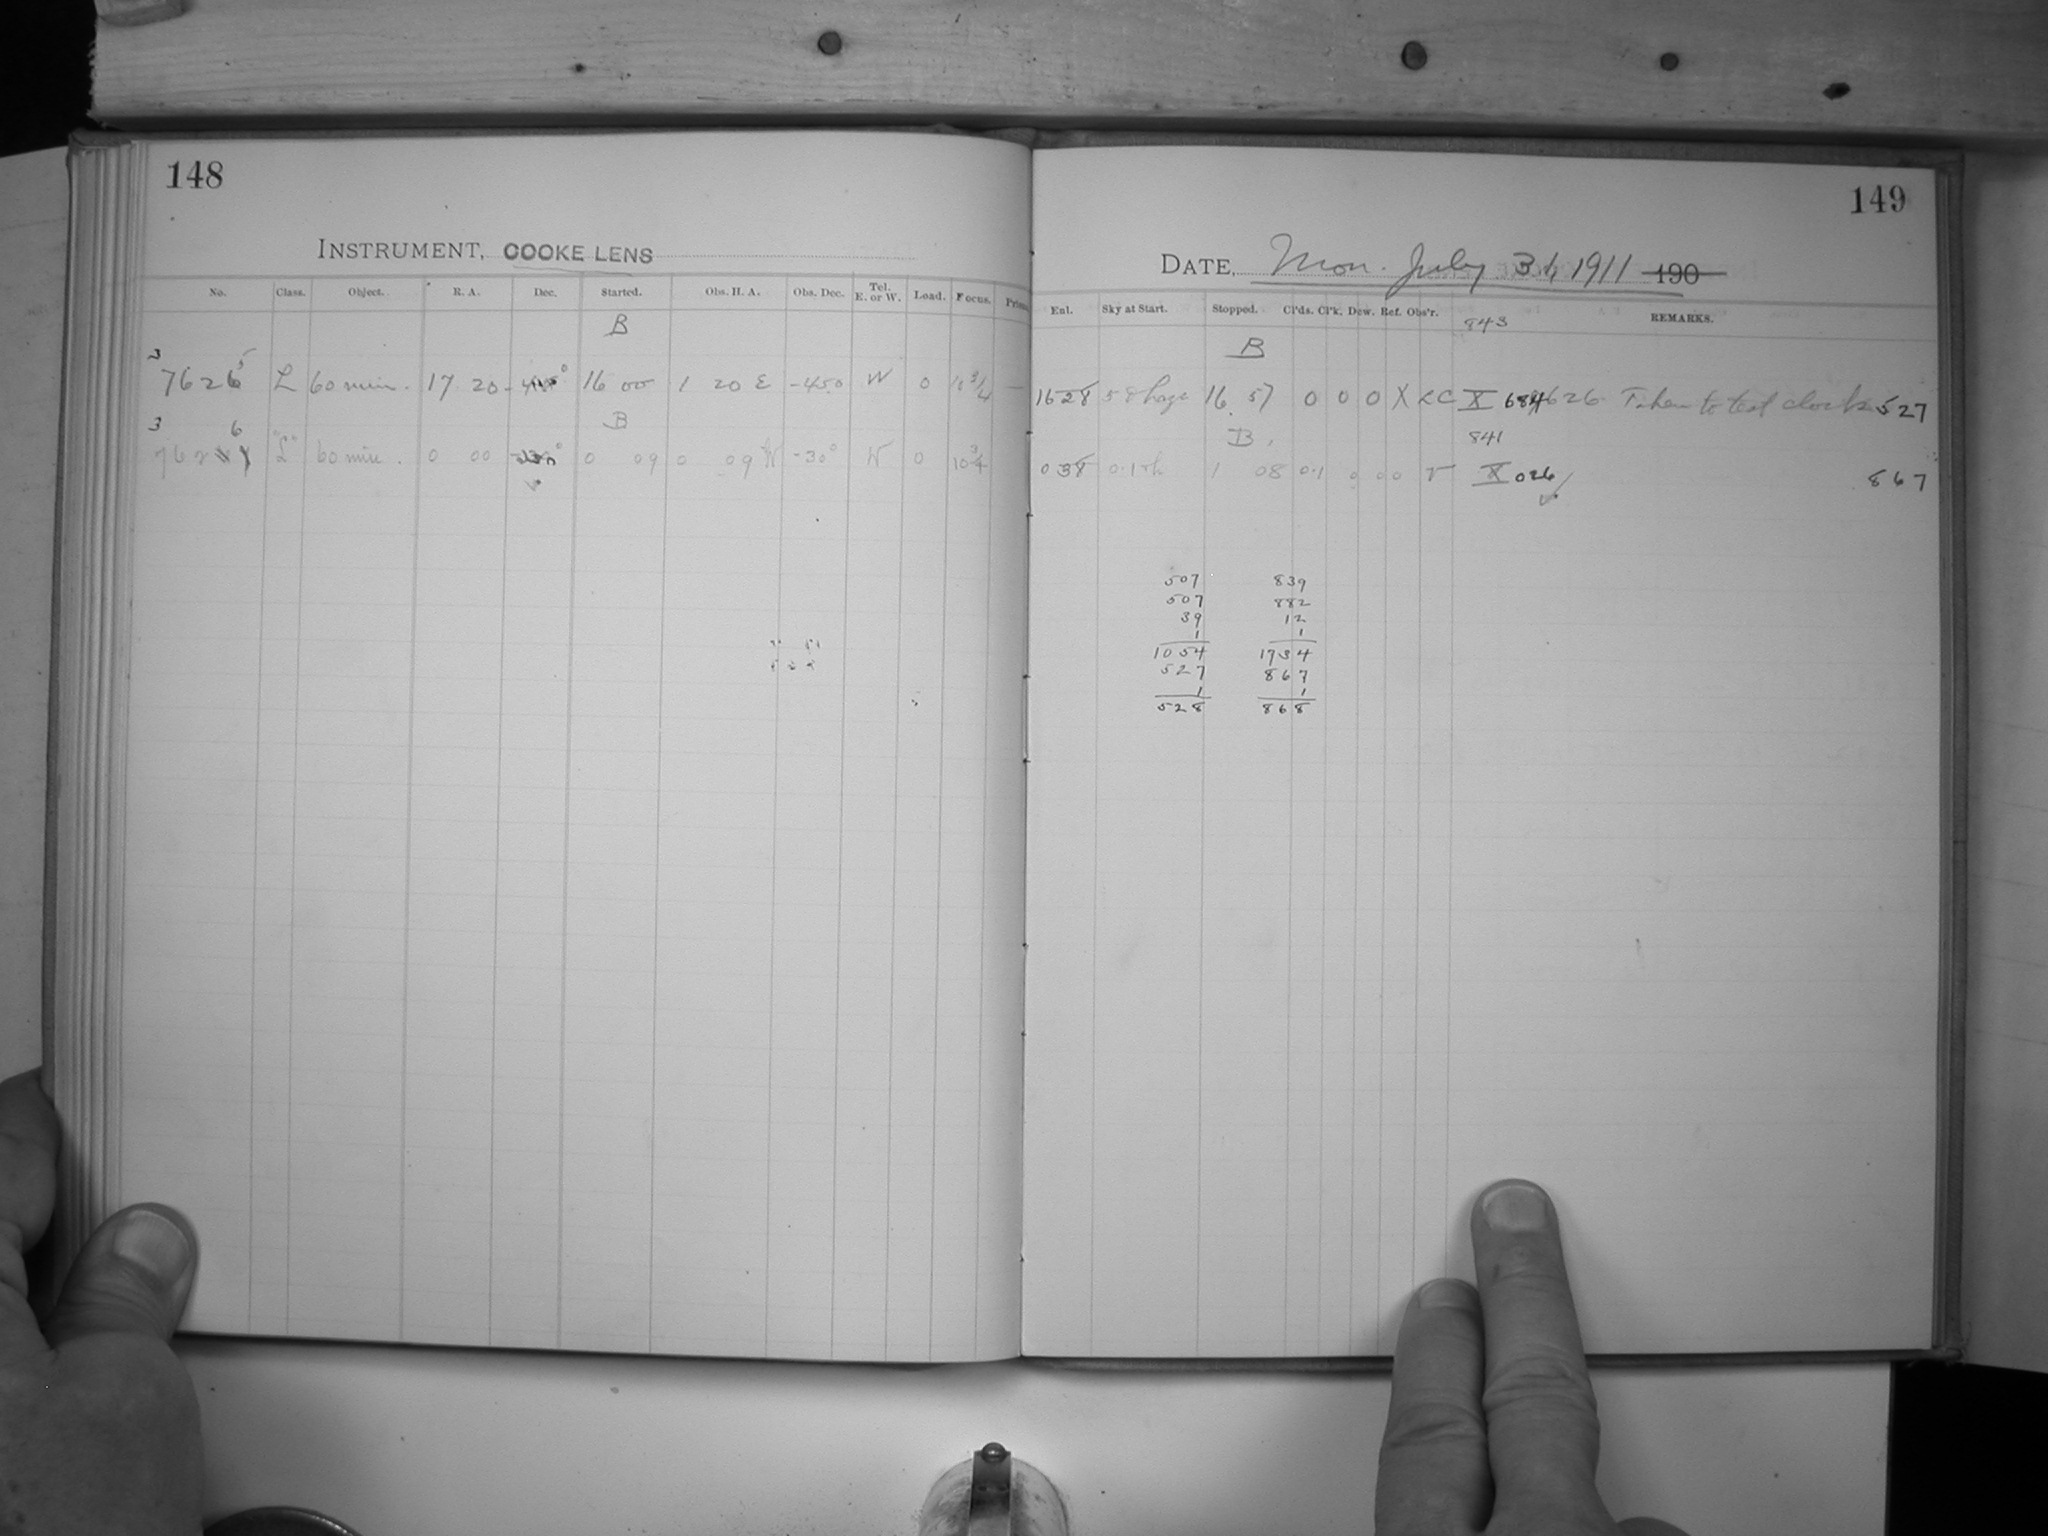 148
INSTRUMENT, COOKE LENS
No. Class. Object. R. A. Dec. Started. Obs. H. A. Obs. Dec. Tel. E. or W. Load. Focus.
B
3 5
7626 L 60 min. 17 20 16 00 1 20 E -450 W 0 10 3/4 —
3 6 B
762 "L" 60 min. 0 00 0 09 0 09 W -30° W 0 10 3/4
149
DATE, Mon. July 31, 1911 190
Enl. Sky at Start. Stopped. Cl'ds. Cl'k. Dew. Ref. Obs'r. REMARKS.
843
B
1628 58 haze 16 57 0 0 0 X LC X 684 626 Taken to test clock 527
B. 841
038 1 08 0.1 0 0 0 X 026 867
507 839
507 882
39 12
1 1
1054 1734
527 867
1 1
528 868